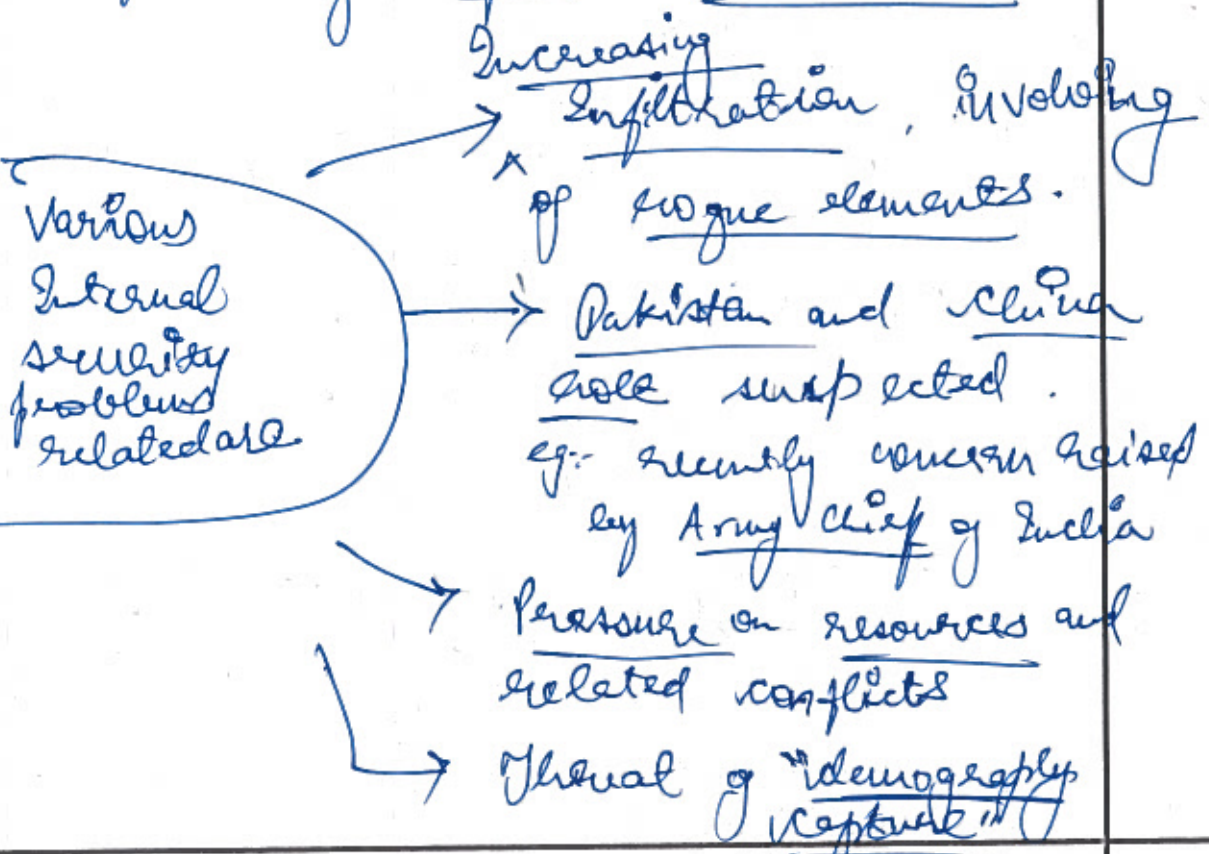 Various
Internal
security
problems
related are
Increasing
Infiltration, involving
of rogue elements.
Pakistan and China
role suspected.
eg:- recently concern raised
by Army Chief of India
Pressure on resources and
related conflicts
Threat of "demography
capture"